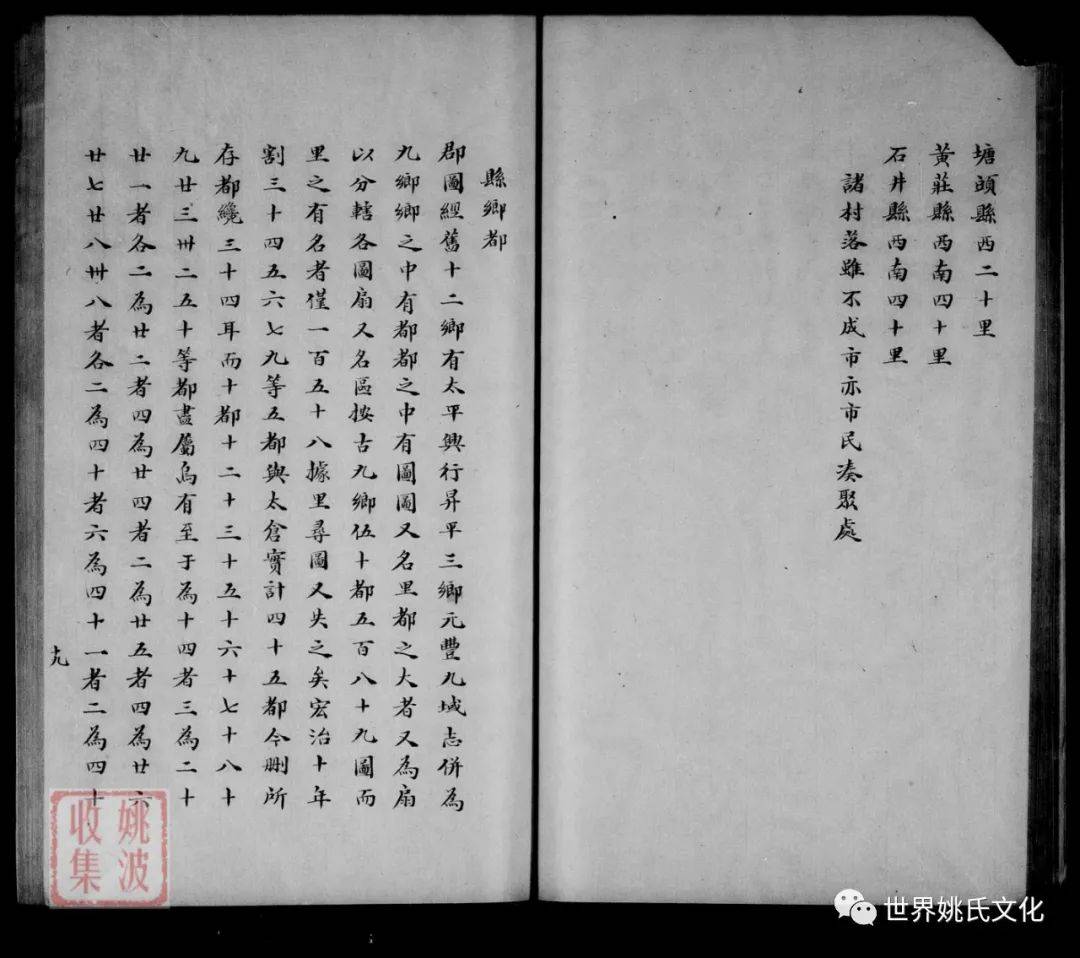 塘頭縣西二十里
黃莊縣西南四十里
石井縣西南四十里
諸村落雖不成市亦市民湊聚處
縣鄉都
郡圖經舊十二鄉有太平興行昇平三鄉元豐九域志併為
九鄉鄉之中有都都之中有圖圖又名里都之大者又為扇
以分轄各圖扇又名區按古九鄉伍十都五百八十九圖而
里之有名者僅一百五十八據里尋圖又失之矣宏治十年
割三十四五六七九等五都與太倉實計四十五都今刪所
存都纔三十四耳而十都十二十三十五十六十七十八十
九廿三卅二五十等都盡屬烏有至于為十四者三為二十
廿一者各二為廿二者四為廿四者二為廿五者四為廿六
廿七廿八卅八者各二為四十者六為四十一者二為四十
十九
姚波
收集
世界姚氏文化